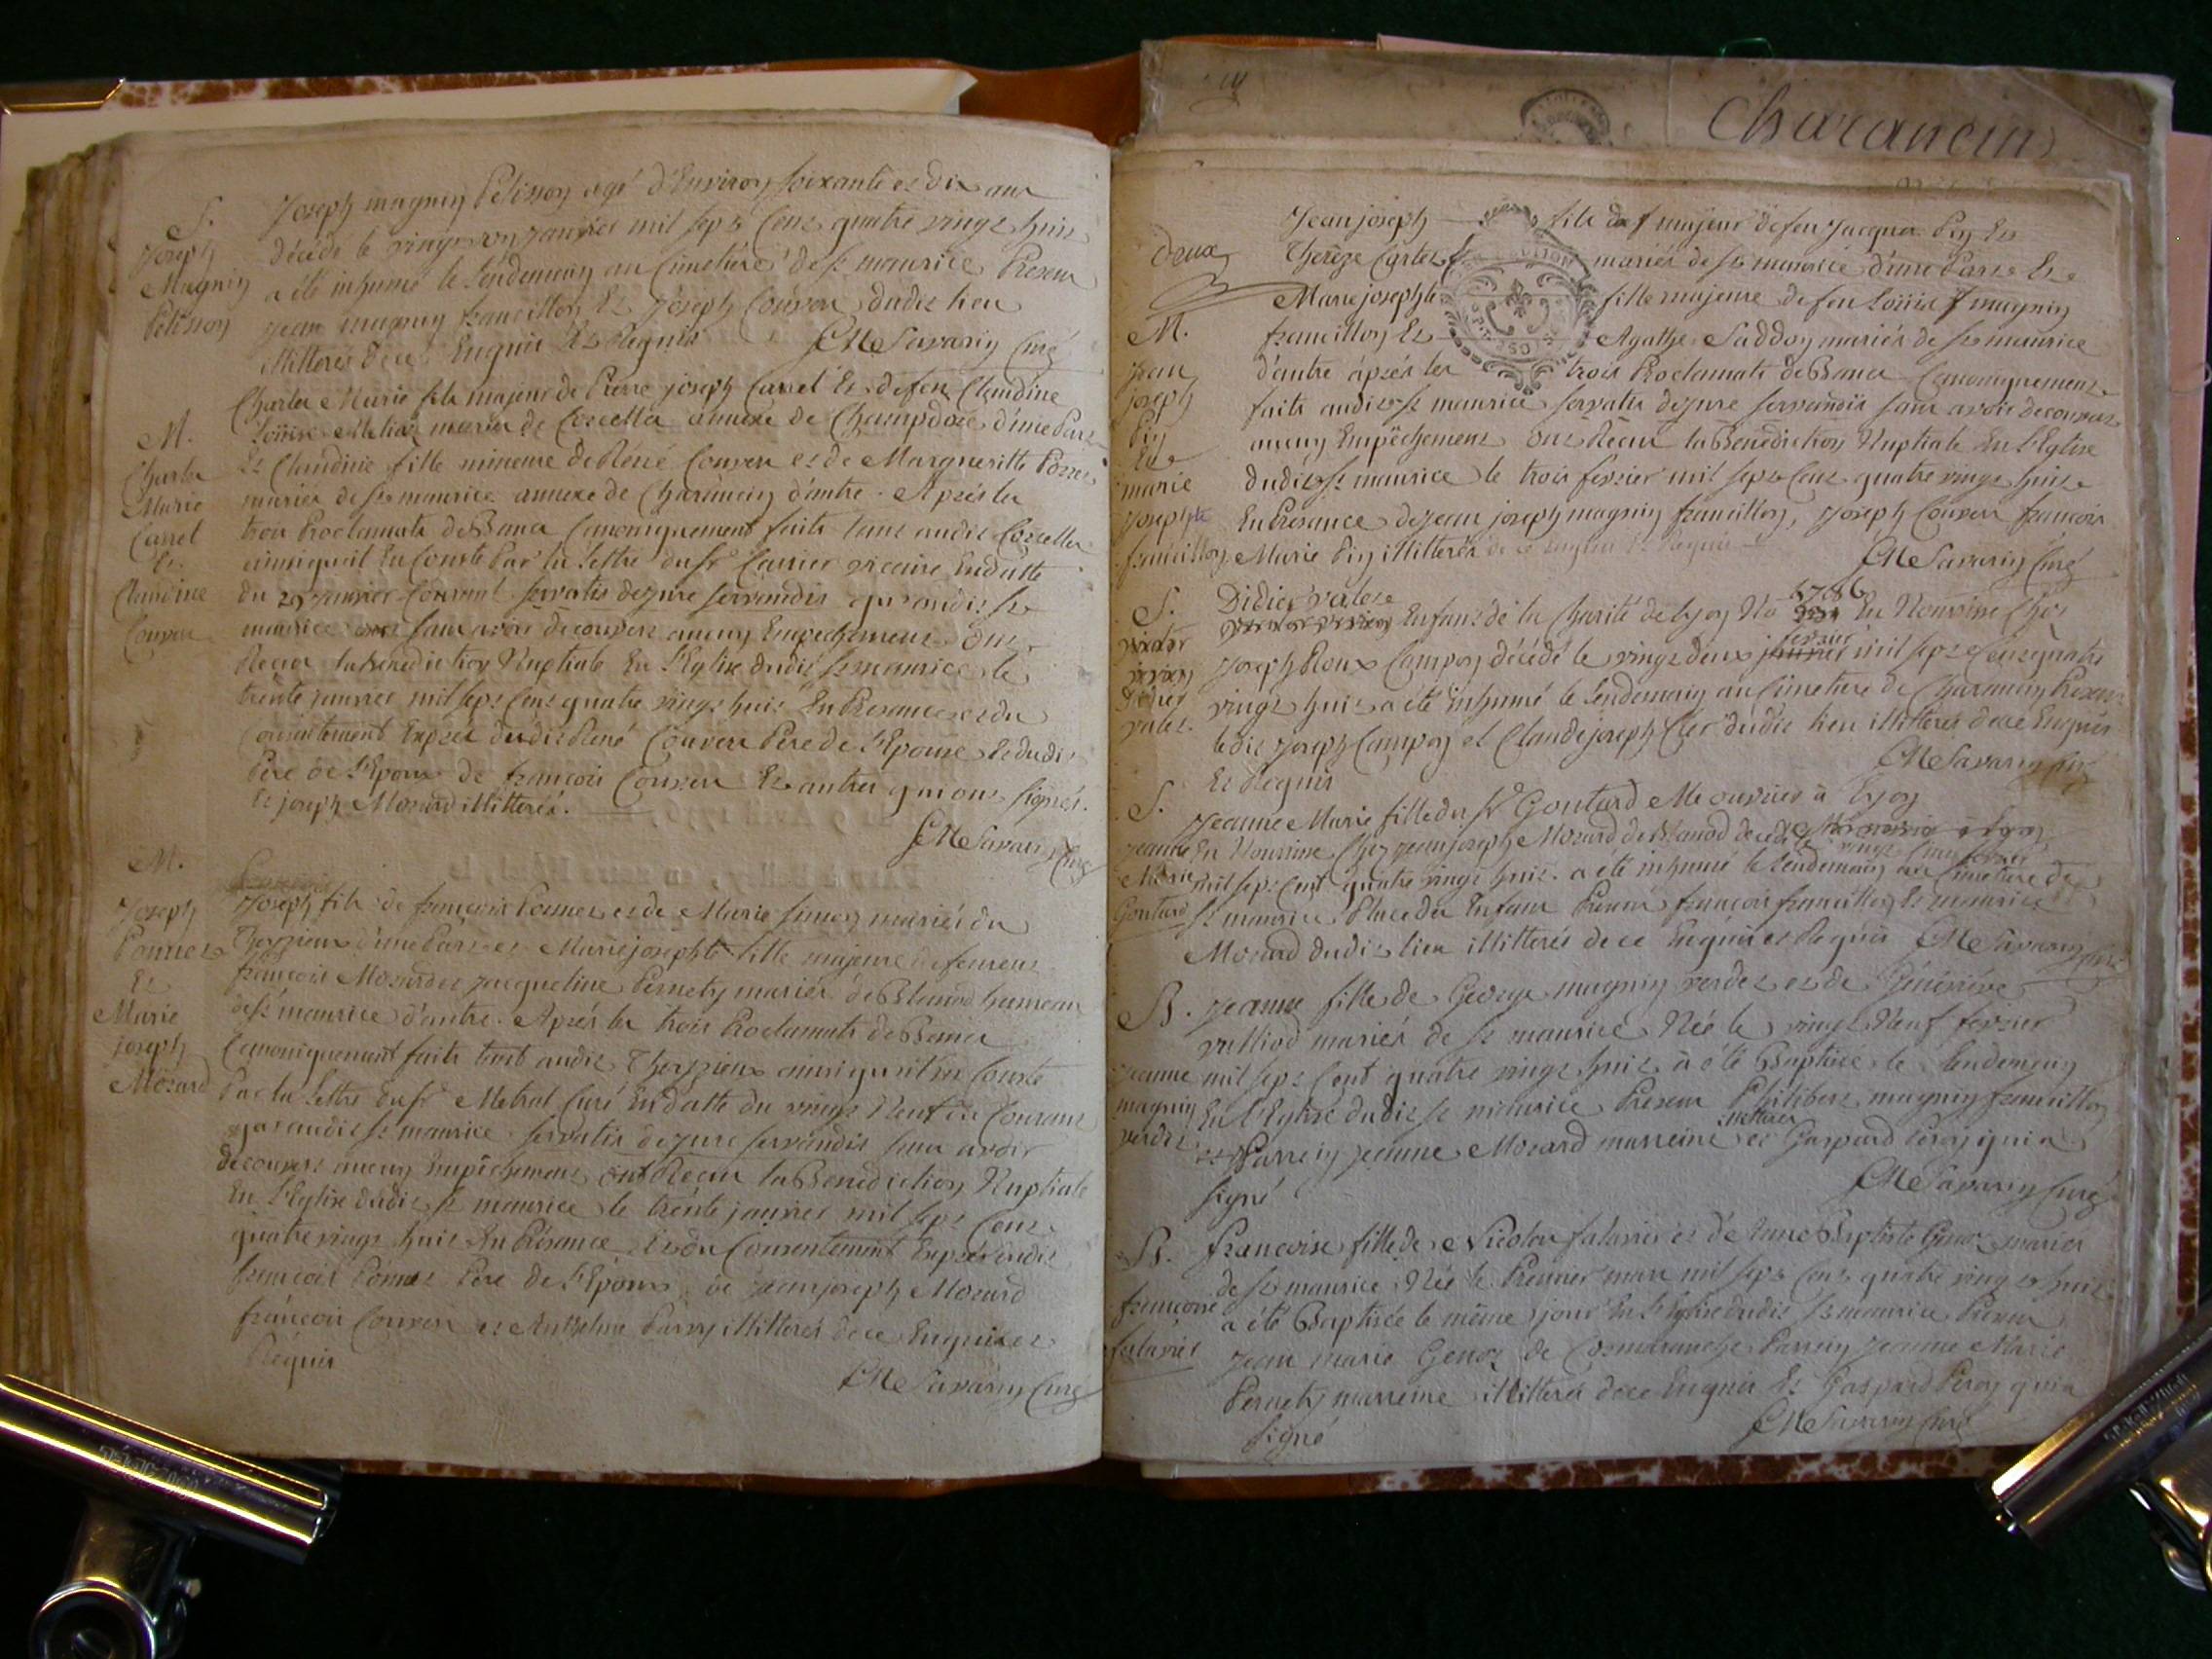 S.
Joseph
Magnin
Pelisson
Joseph magnin Pelisson agé d'Environ soixante et dix ans
décédé le vingt janvier mil sept Cent quatre vingt huit
a été inhumé le Lendemain au Cimetière de St maurice Présens
jean magnin francillon Et Joseph Couven dudit lieu
illitterés de ce Enquis Et Requis CM Savarin Curé
M.
Charle
Marie
Carrel
Et
Claudine
Couven
Charle Marie fils majeur de Pierre joseph Carrel Et de feu Claudine
Loüise mariés de annexe de Champdor d'une Part
Et Claudine fille mineure de Réné Couven et de Margueritte
mariés de St maurice annexe de Charancin d'autre. Après les
trois Proclamats de Bancs Canoniquement faits tant audit
ainsi quil En Conste Par la Lettre du Sr Carrier vicaire En datte
du 29 janvier Courant servatis de jure servandis qu'audit St
maurice sans avoir decouvert aucun Empechement Ont
Reçu la Benediction Nuptiale En l'Eglise dudit St maurice le
trente janvier mil sept Cent quatre vingt huit En Présence et du
Consentement Exprès dudit Réné Couven Pere de l'Epouse Et dudit
Pere de l'Epoux de françois Couven Et autres qui ont signés.
Et joseph Mozard illitterés.
CM Savarin Curé
M.
Joseph
Ponnet
Et
Marie
joseph
Mozard
Joseph fils de françois Ponnet et de Marie mariés du
d'une Part et Marie josephte fille majeure de feu
françois Mozard et jacqueline Pernety mariés de hameau
de St maurice d'autre. Après les trois Proclamats de Bancs
Canoniquement faits tant audit ainsi qu'il En Conste
Par la Lettre du Sr Metral Curé En datte du vingt Neuf du Courant
qu'audit St maurice servatis de jure servandis sans avoir
decouvert aucun Empêchement ont Reçu la Benediction Nuptiale
En l'Eglise dudit St maurice le trente janvier mil sept Cent
quatre vingt huit En Présence Et du Consentement Exprès dudit
françois Ponnet Pere de l'Epoux de jean joseph Mozard
françois Couven et Anthelme illitterés de ce Enquis et
Requis
CM Savarin Curé
Charancin
deux
M.
jean
joseph
Pin
Et
marie
Josephte
francillon
Jean joseph fils majeur de feu Jacques Pin Et
Therèze mariés de St maurice d'une Part Et
Marie josephte fille majeure de feu Loüis magnin
francillon Et Agathe Saddoy mariés de St maurice
d'autre àprès les trois Proclamats de Bancs Canoniquement
faits audit St maurice servatis de jure servandis sans avoir decouvert
aucun Empêchement Ont Reçu la Bénédiction Nuptiale En l'Eglise
dudit St maurice le trois fevrier mil sept Cent quatre vingt huit
En Présance de jean joseph magnin francillon, Joseph Couven françois
Marie Pin illitterés de ce Enquis Et Requis
CM Savarin Curé
S.
Didier
valet
Didier valet
Enfant de la Charité de Lyon No 5786 En Nourrisse Chez
Joseph Roux Campon décédé le vingt deux fevrier mil sept Cent quatre
vingt huit a été inhumé le Lendemain au Cimetiere de Charancin Présens
ledit Joseph Campon et Claude joseph dudit lieu illitterés de ce Enquis
Et Requis
CM Savarin Curé
S.
jeanne
Marie
Goutard
Jeanne Marie fille du Sr Goutard Me ouvrier à Lyon
En Nourrisse Chez jean joseph Mozard de décédée le vingt Cinq fevrier
mil sept Cent quatre vingt huit a été inhumé le Lendemain au Cimetiere de
St maurice Place des Enfans Présens françois francillon Et maurice
Mozard dudit lieu illitterés de ce Enquis et Requis CM Savarin Curé
B.
jeanne
magnin
verdet
Jeanne fille de George magnin verdet et de Généviéve
vulliod mariés de St maurice Née le vingt Neuf fevrier
mil sept Cent quatre vingt huit à été Baptisée le lendemain
En l'Eglise dudit St maurice Présens Philibert magnin francillon
Parrein jeanne Mozard marreine et Gaspard Peroy qui a
signé
CM Savarin Curé
B.
françoise
falavier
françoise fille de Nicolas falavier et de Anne Baptiste Genoz mariés
de St maurice Née le Premier mars mil sept Cent quatre vingt huit
a été Baptisée le même jour En l'Eglise dudit St maurice Présens
jean marie Genoz de Cormaranche Parrein Jeanne Marie
Pernety marreine illitterés de ce Enquis Et Gaspard Peroy qui a
signé
CM Savarin Curé